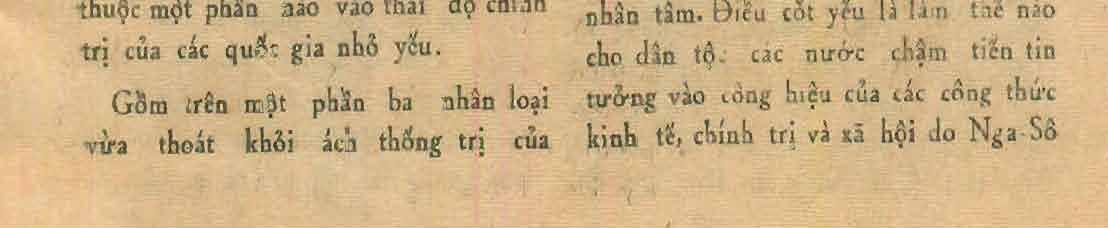 thuộc một phần nào vào thái độ chính
trị của các quốc gia nhỏ yếu.
Gồm trên một phần ba nhân loại
vừa thoát khỏi ách thống trị của
nhân tâm. Điều cốt yếu là làm thế nào
cho dân tộc các nước chậm tiến tin
tưởng vào công hiệu của các công thức
kinh tế, chính trị và xã hội do Nga-Sô